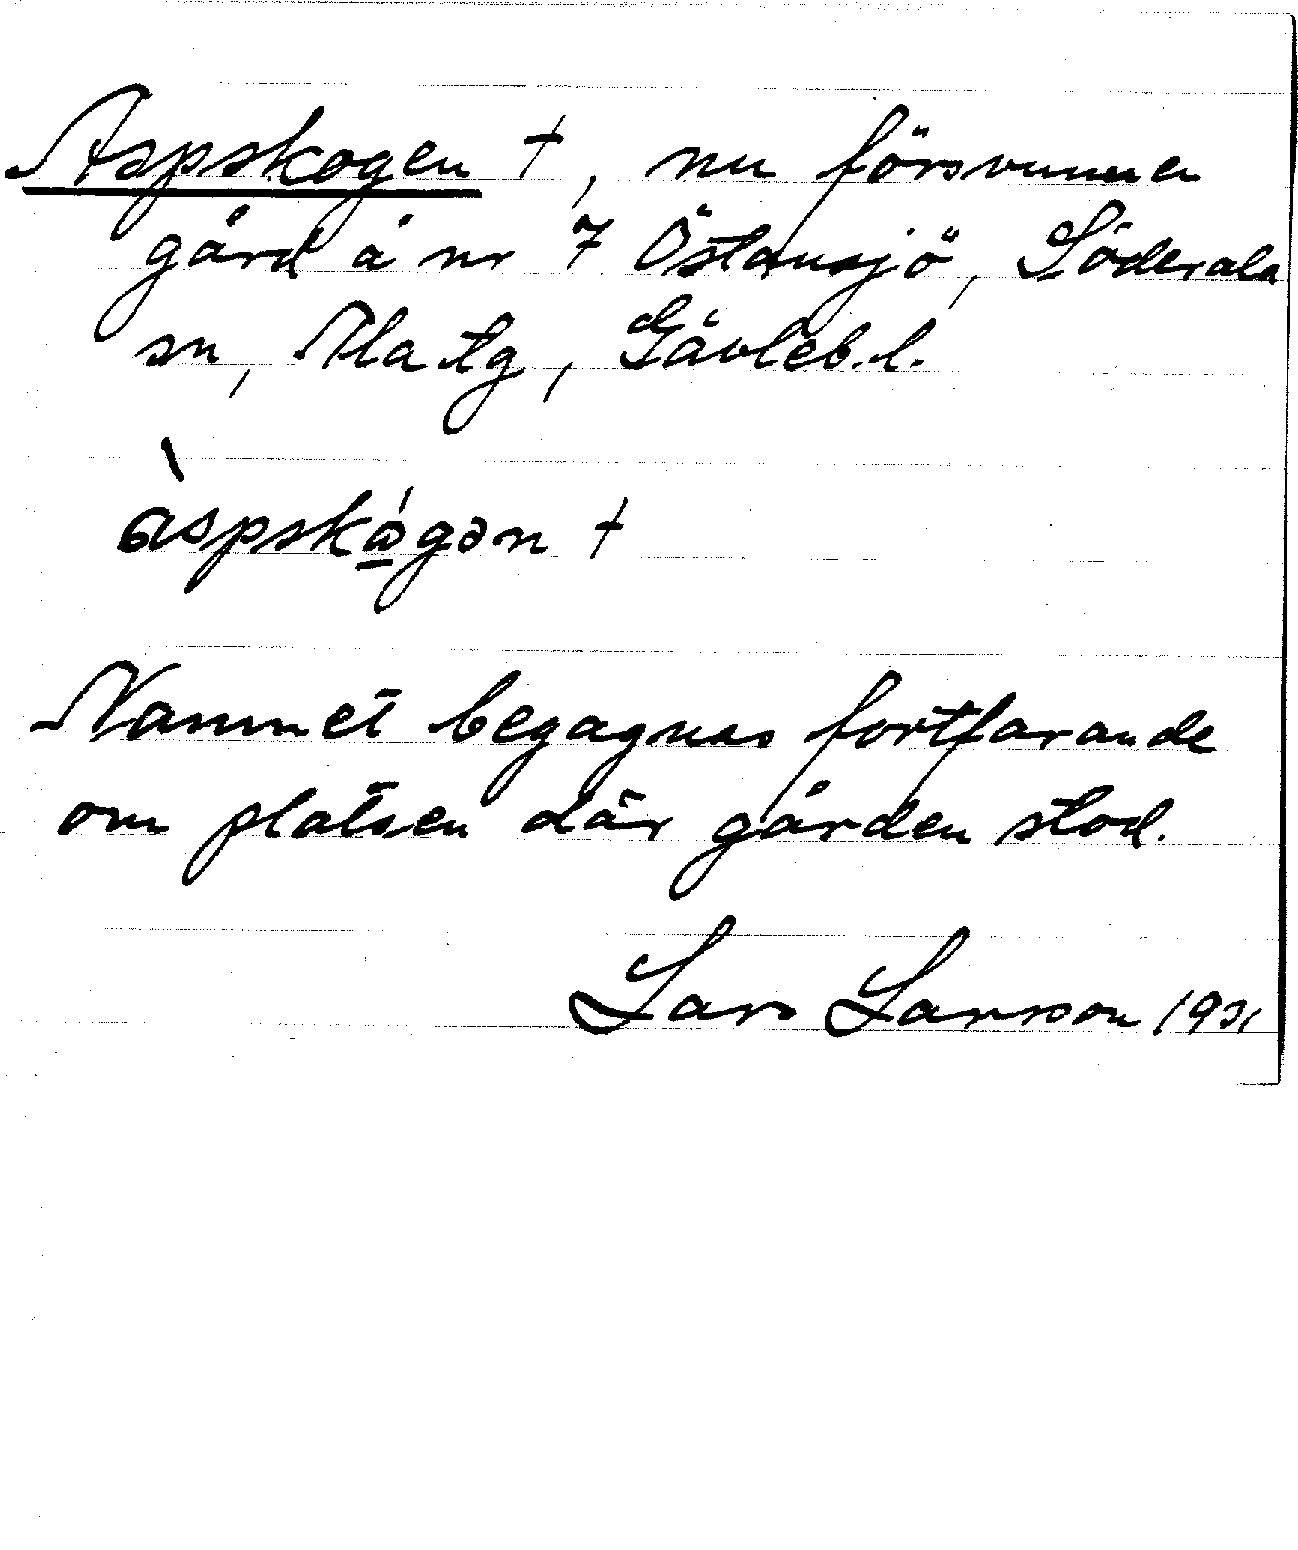 Aspskogen †, nu försvunnen
gård å nr 7 Östansjö, Söderala
sn, Ala tg, Gävleb.l.
àspskǫ́gən †
Namnet begagnas fortfarande
om platsen där gården stod.
Lars Larsson 1931